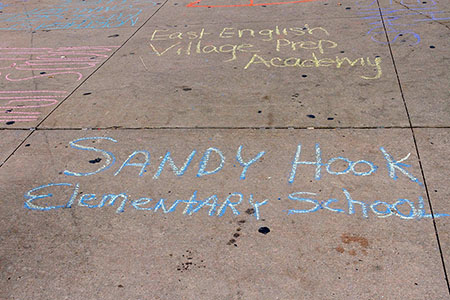 East English
Village Prep
Academy
SANDY HOOK
ELEMENTARY SCHOOL